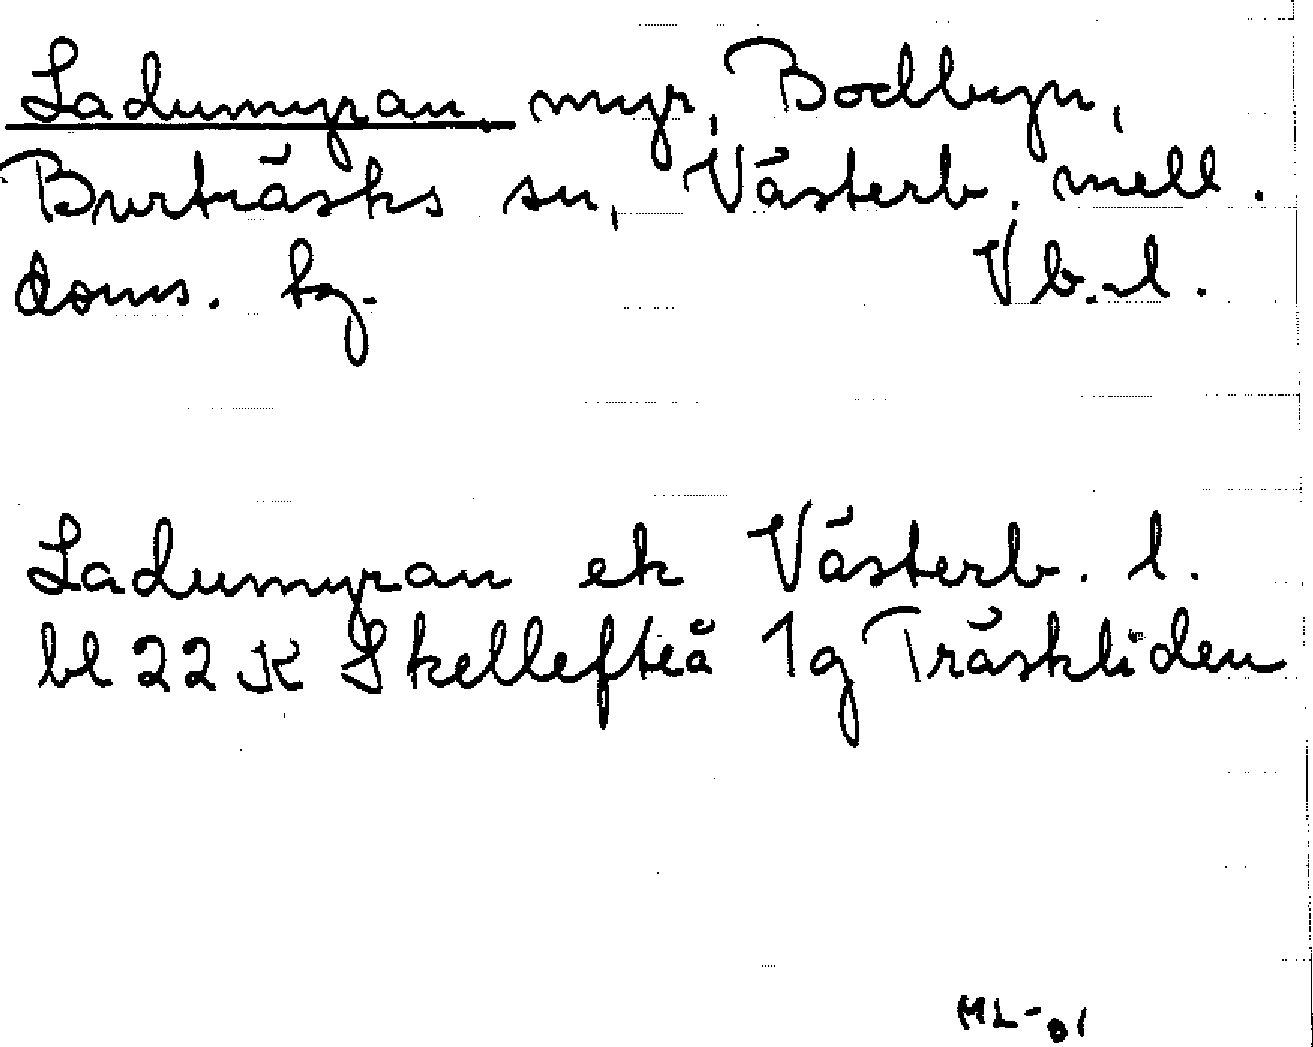 Ladumyran, myr, Bodbyn,
Burträsks sn, Västerb. mell.
doms. tg. Vb. l.
Ladumyran ek Västerb. l.
bl 22 K Skellefteå 1g Träskliden
ML-81